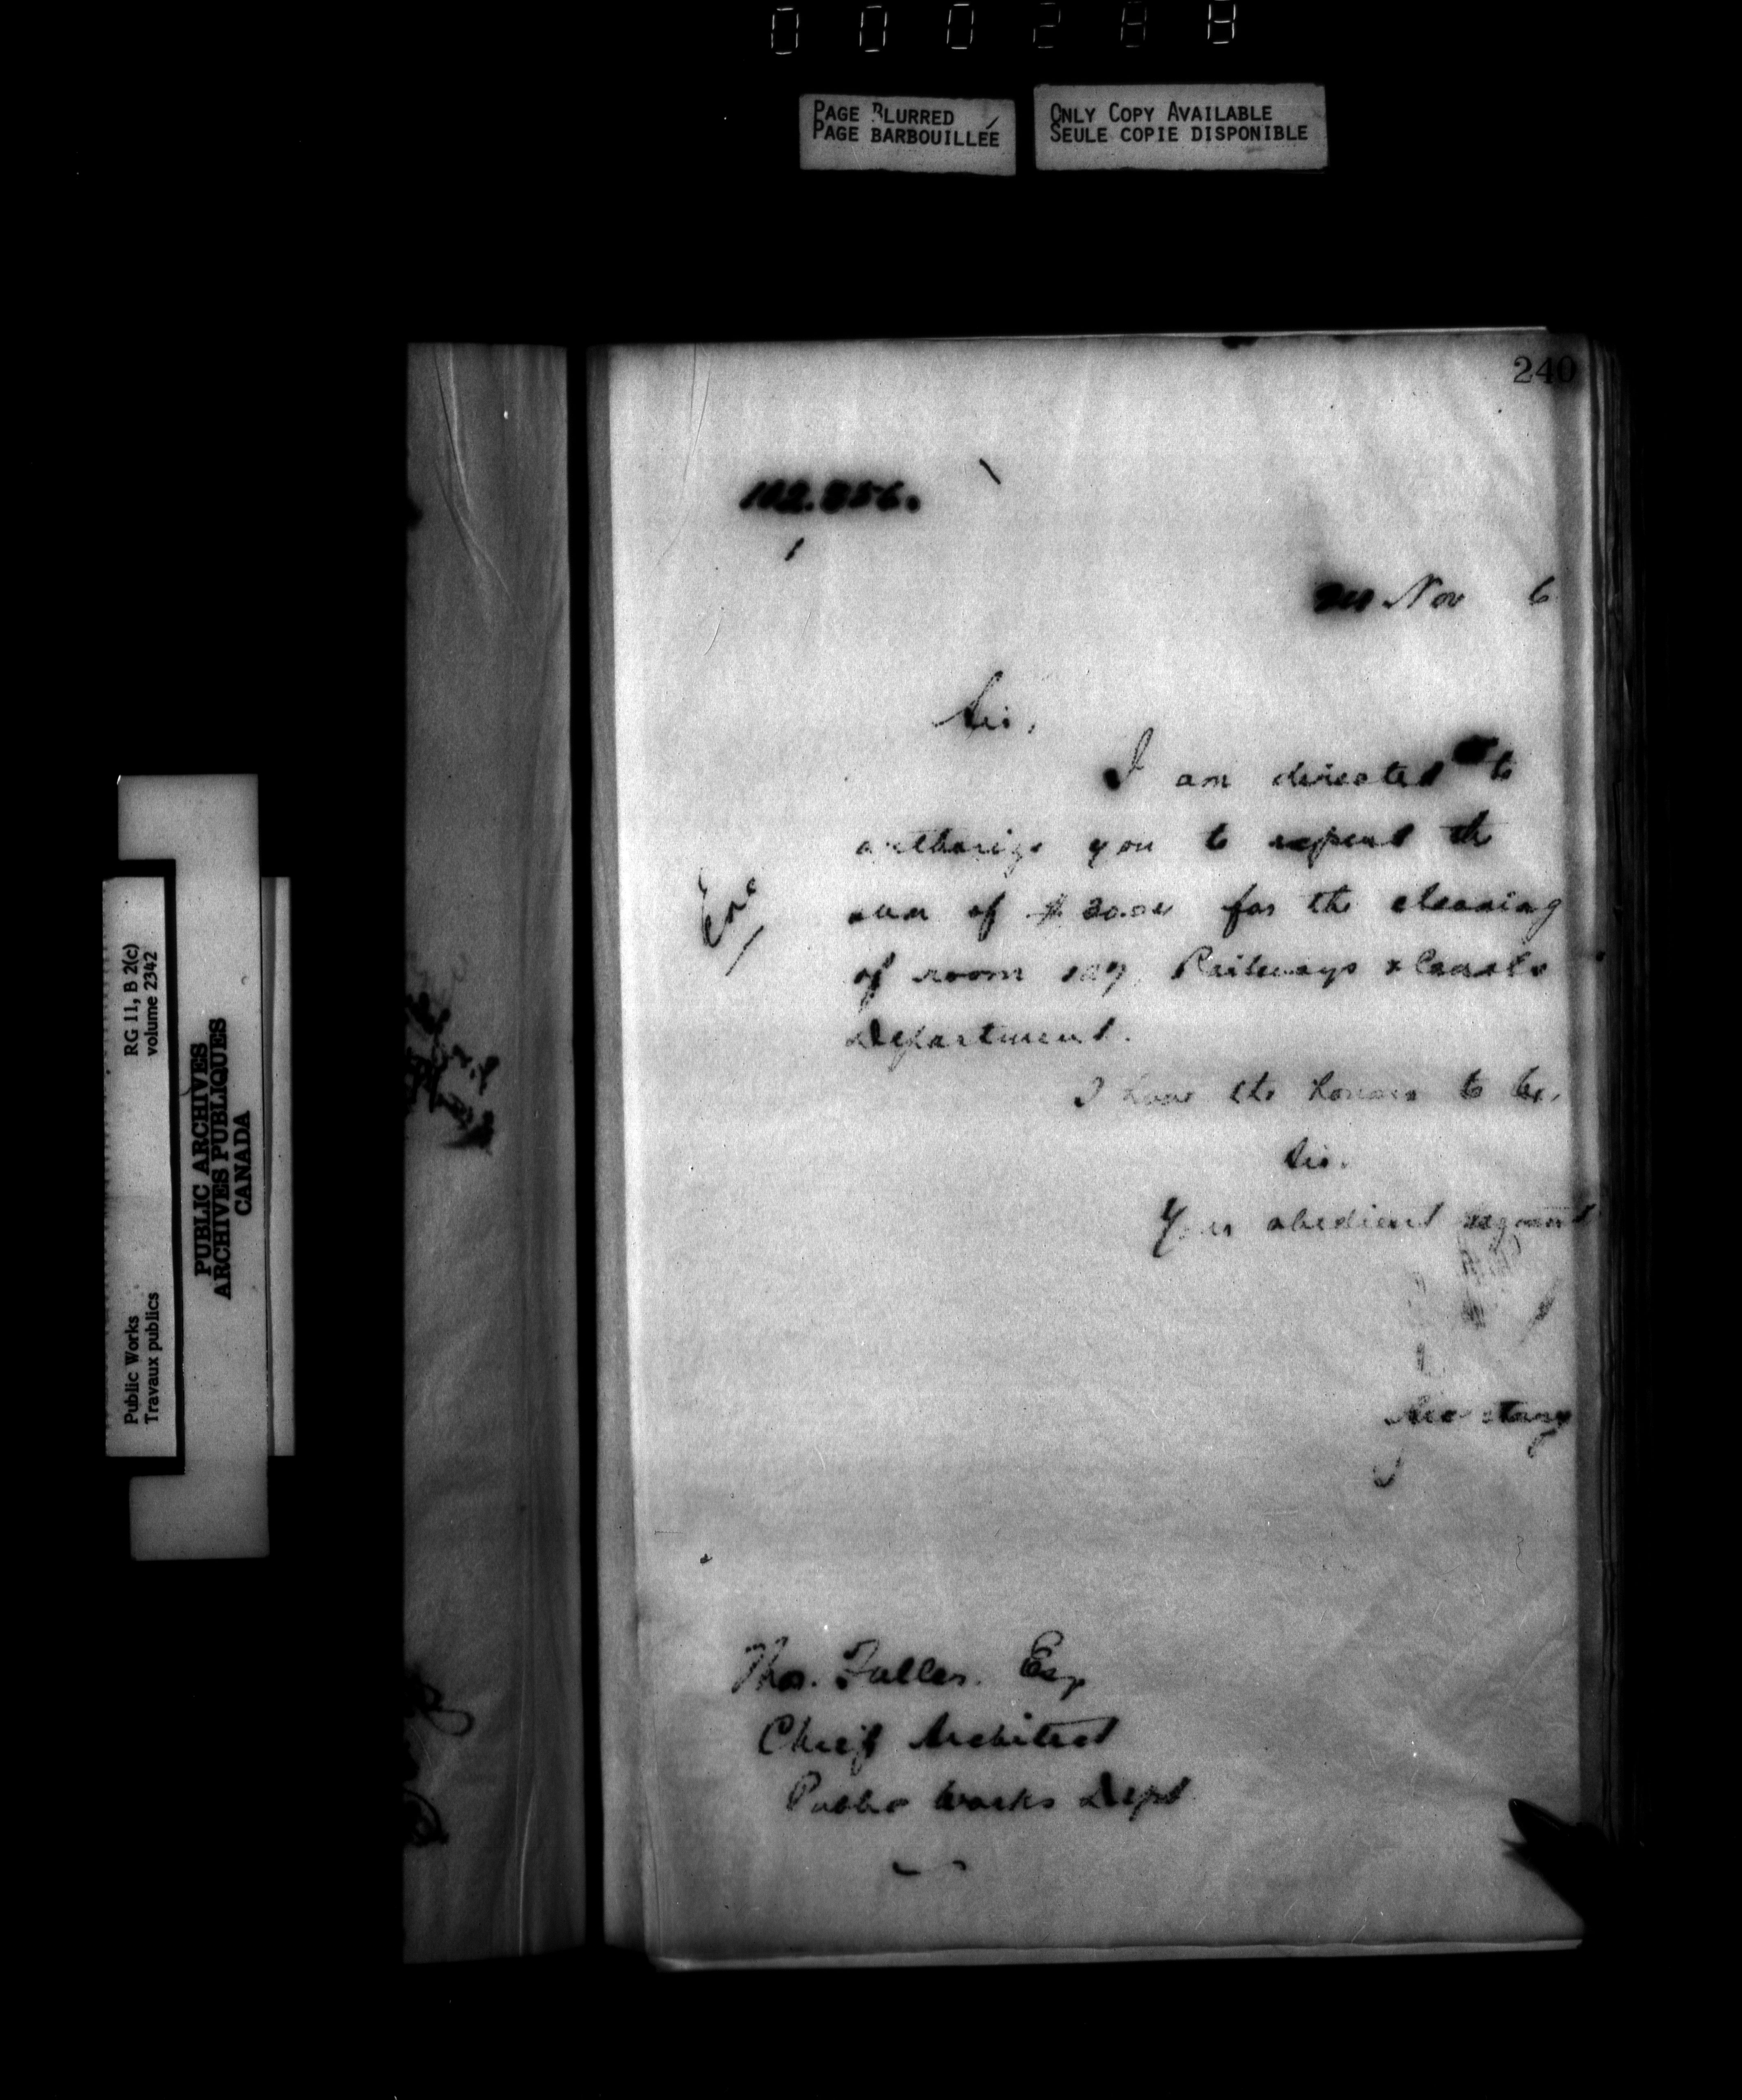 000288
PAGE BLURRED
PAGE BARBOUILLÉE
ONLY COPY AVAILABLE
SEULE COPIE DISPONIBLE
240
102.856.
Nov 6
Sir,
I am directed to
authorize you to expend the
sum of $ for the cleaning
of room Railways & Canals
Department.
I have the honour to be,
Sir.
Your obedient servant
Secretary
Thos. Fuller. Esq
Chief Architect
Public Works Dept
Public Works
Travaux publics
RG 11, B 2(c)
volume 2342
PUBLIC ARCHIVES
ARCHIVES PUBLIQUES
CANADA